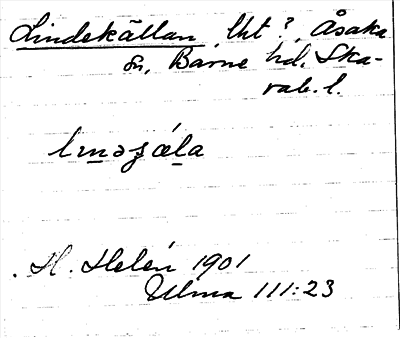 Lindekällan, lht?, Åsaka
sn, Barne hd, Ska-
rab. l.
H. Helén 1901
Ulma 111:23